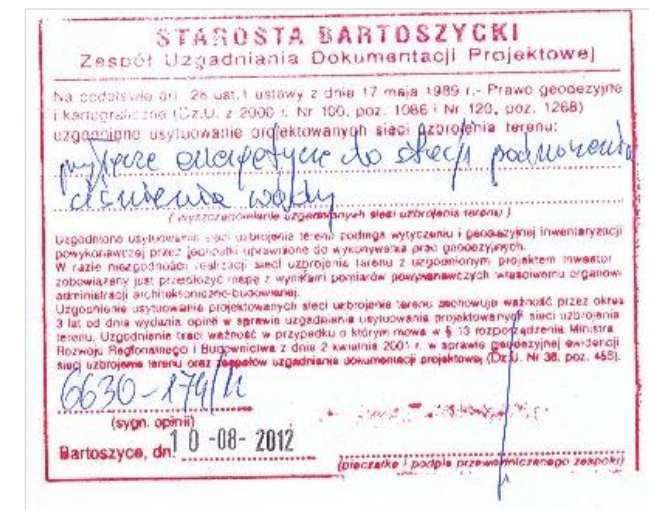 STAROSTA BARTOSZYCKI
Zespół Uzgadniania Dokumentacji Projektowej
Na podstawie art. 28 ust.1 ustawy z dnia 17 maja 1989 r.- Prawo geodezyjne
i kartograficzne (Dz.U. z 2000 r. Nr 100, poz. 1086 i Nr 120, poz. 1268)
uzgodniono usytuowanie projektowanych sieci uzbrojenia terenu:
przyłącze energetyczne do stacji podnoszenia
ciśnienia wody
( wyszczególnienie uzgadnianych sieci uzbrojenia terenu )
Uzgodnione usytuowanie sieci uzbrojenia terenu podlega wytyczeniu i geodezyjnej inwentaryzacji
powykonawczej przez jednostki uprawnione do wykonywania prac geodezyjnych.
W razie niezgodności realizacji sieci uzbrojenia terenu z uzgodnionym projektem inwestor
zobowiązany jest przedłożyć mapę z wynikami pomiarów powykonawczych właściwemu organowi
administracji architektoniczno-budowlanej.
Uzgodnienie usytuowania projektowanych sieci uzbrojenia terenu zachowuje ważność przez okres
3 lat od dnia wydania opinii w sprawie uzgadniania usytuowania projektowanych sieci uzbrojenia
terenu. Uzgodnienie traci ważność w przypadku o którym mowa w § 13 rozporządzenia Ministra
Rozwoju Regionalnego i Budownictwa z dnia 2 kwietnia 2001 r. w sprawie geodezyjnej ewidencji
sieci uzbrojenia terenu oraz zespołów uzgadniania dokumentacji projektowej (Dz.U. Nr 38, poz. 455).
6630-174/12
(sygn. opinii)
Bartoszyce, dn. 10-08-2012
(pieczątka i podpis przewodniczącego zespołu)